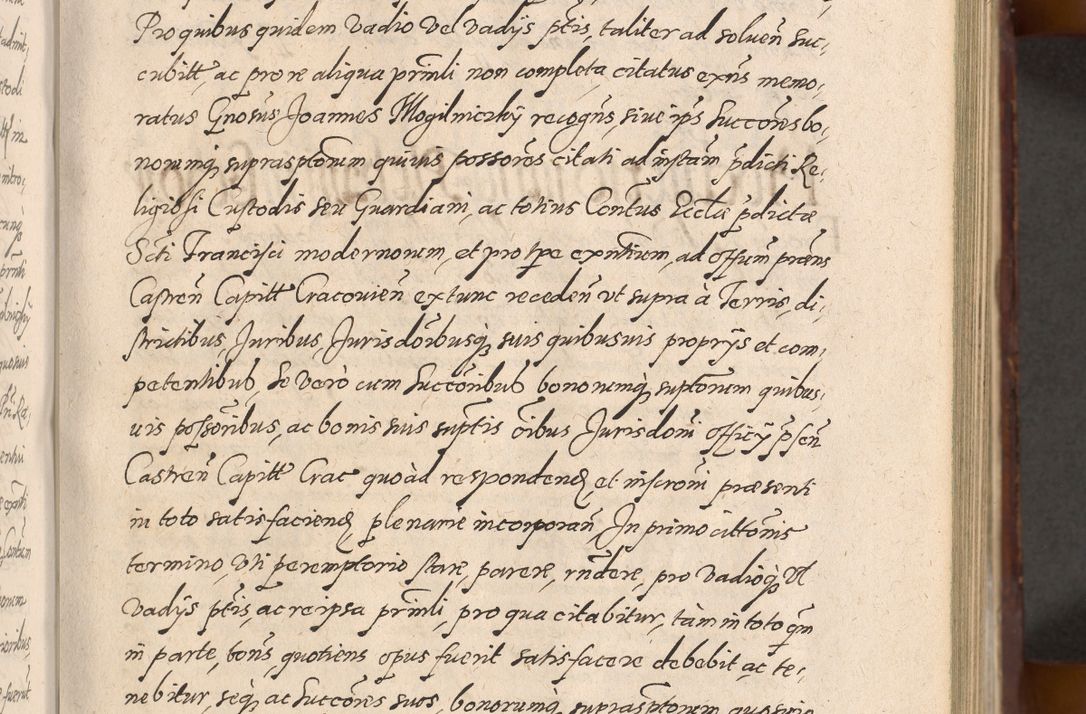 Pro quibus quidem vadio vel vadijs ptis, taliter ad soluen suc,
cubitt, ac pro re aliqua prinli non completa citatus exns memo,
ratus Gnosus Joannes Mogilniczky recogns, siue ips succores bo,
norumq suprasptorum quiuis possores citati ad instam pdicti Re,
ligiosi Custodis seu Guardiani, ac totius Contus Eccle pdictæ
Scti Francisci modernorum, et pro tpe exntium, ad offum præns
Castren Capitt Cracouien ex tunc receden vt supra à Terris, di,
strictibus, Juribus, Jurisdoibusq suis quibusuis proprijs et com,
petentibus, se verò cum succoribus bonorumq suptorum quibus,
uis possoribus, ac bonis suis suptis oibus Jurisdoni officij psen
Castren Capitt Crac quoàd respondend, et inscroni præsenti
in toto satisfaciend plenarie incorporan, In primo cittonis
termino, vti peremptorio stare, parere, rndere, pro vadioq vel
vadijs ptis, ac re ipsa prinli, pro qua citabitur, tàm in toto qm
in parte, tons, quotiens opus fuerit satisfacere debebit ac te,
nebitur, seq ac succores suos, bonorumq suprasptorum quosuis